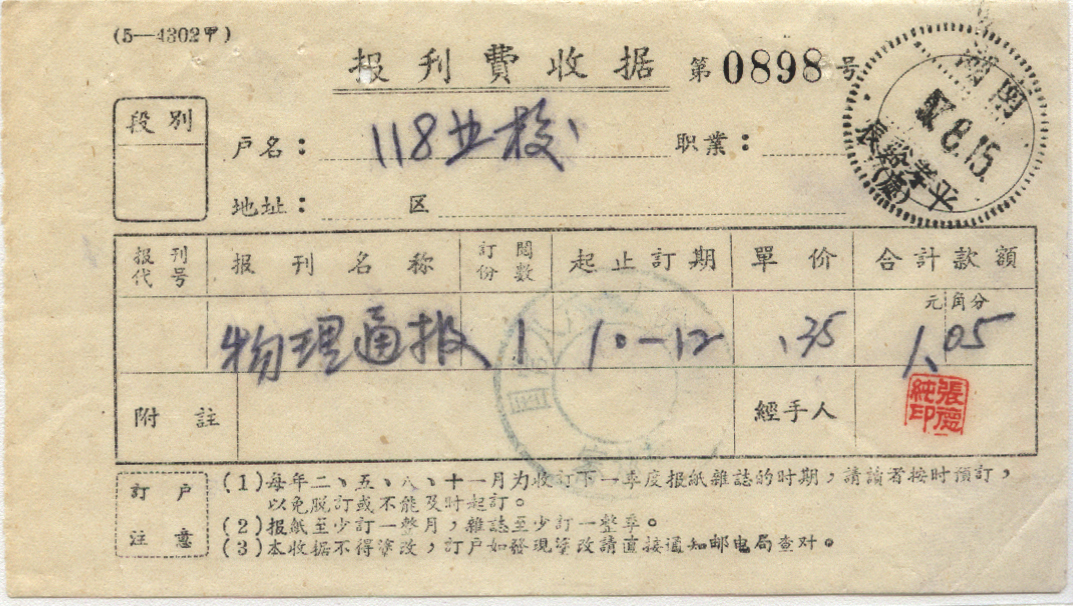 (5—4302甲)
报刊費收据 第0898号
段别
户名： 118业校 职業：
地址： 区
湖南
57.8.15.
报刊代号 报刊名称 訂閱份数 起止訂期 單价 合計款額
元角分
物理通报 1 10—12 .35 1.05
附註 經手人
張德純印
訂户注意
(1)每年二、五、八、十一月为收訂下一季度报紙雜誌的时期，請讀者按时預訂，
以免脱訂或不能及时起訂。
(2)报紙至少訂一整月，雜誌至少訂一整季。
(3)本收据不得塗改，訂户如發現塗改請直接通知邮电局查对。